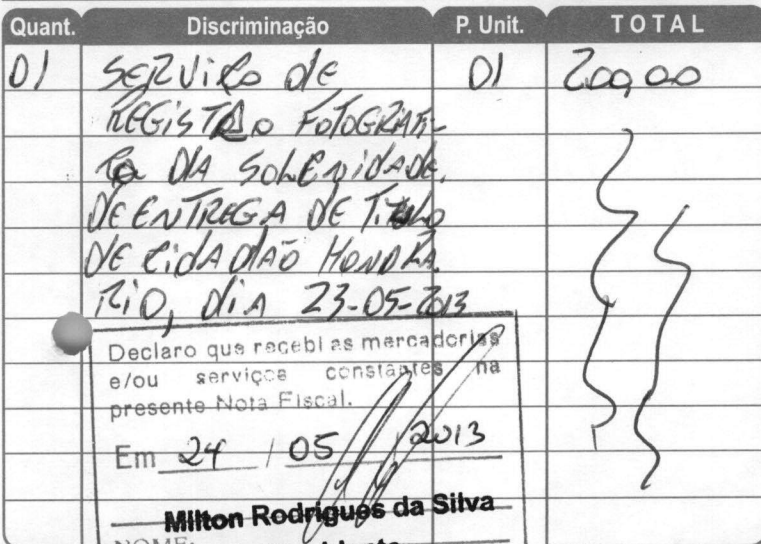 Quant. Discriminação P. Unit. TOTAL
01 SERVIÇO DE 01 200,00
REGISTRO FOTOGRAFI-
CO DA SOLENIDADE
DE ENTREGA DE TITULO
DE CIDADÃO HONORA
RIO, DIA 23-05-2013
Declaro que recebi as mercadorias
e/ou serviços constantes na
presente Nota Fiscal.
Em 24 / 05 / 2013
Milton Rodrigues da Silva
NOME: